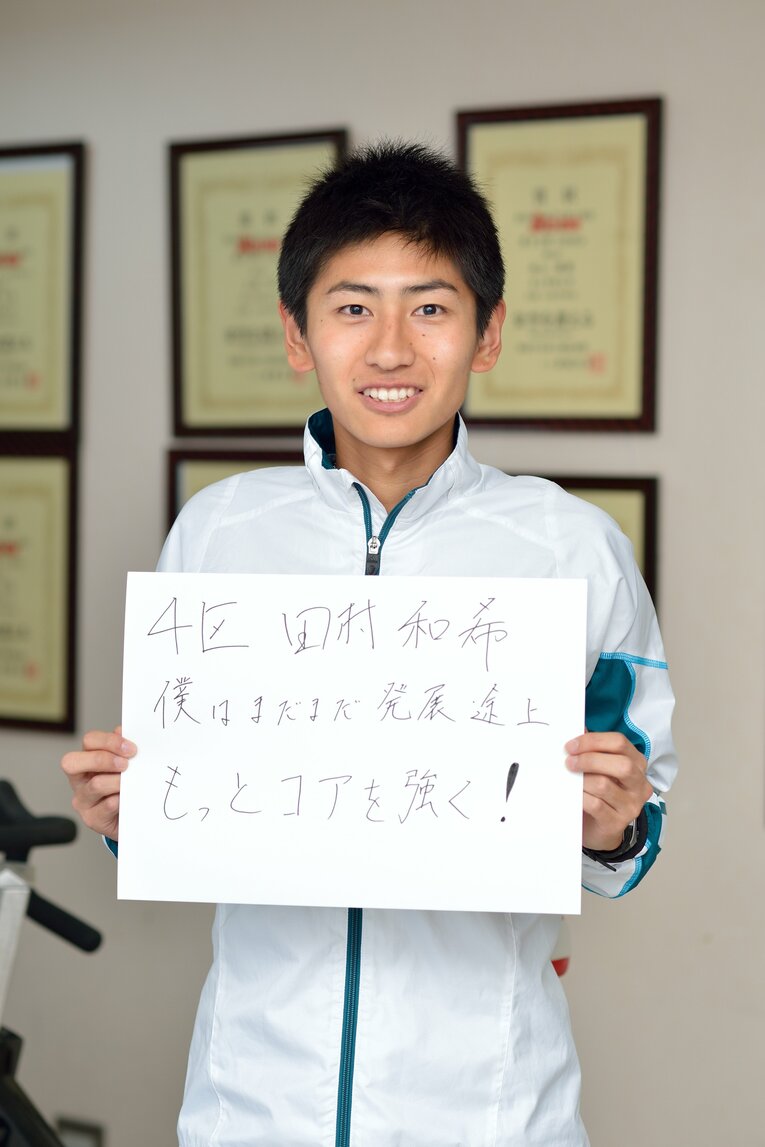 4区 田村 和希
僕はまだまだ発展途上
もっとコアを強く!